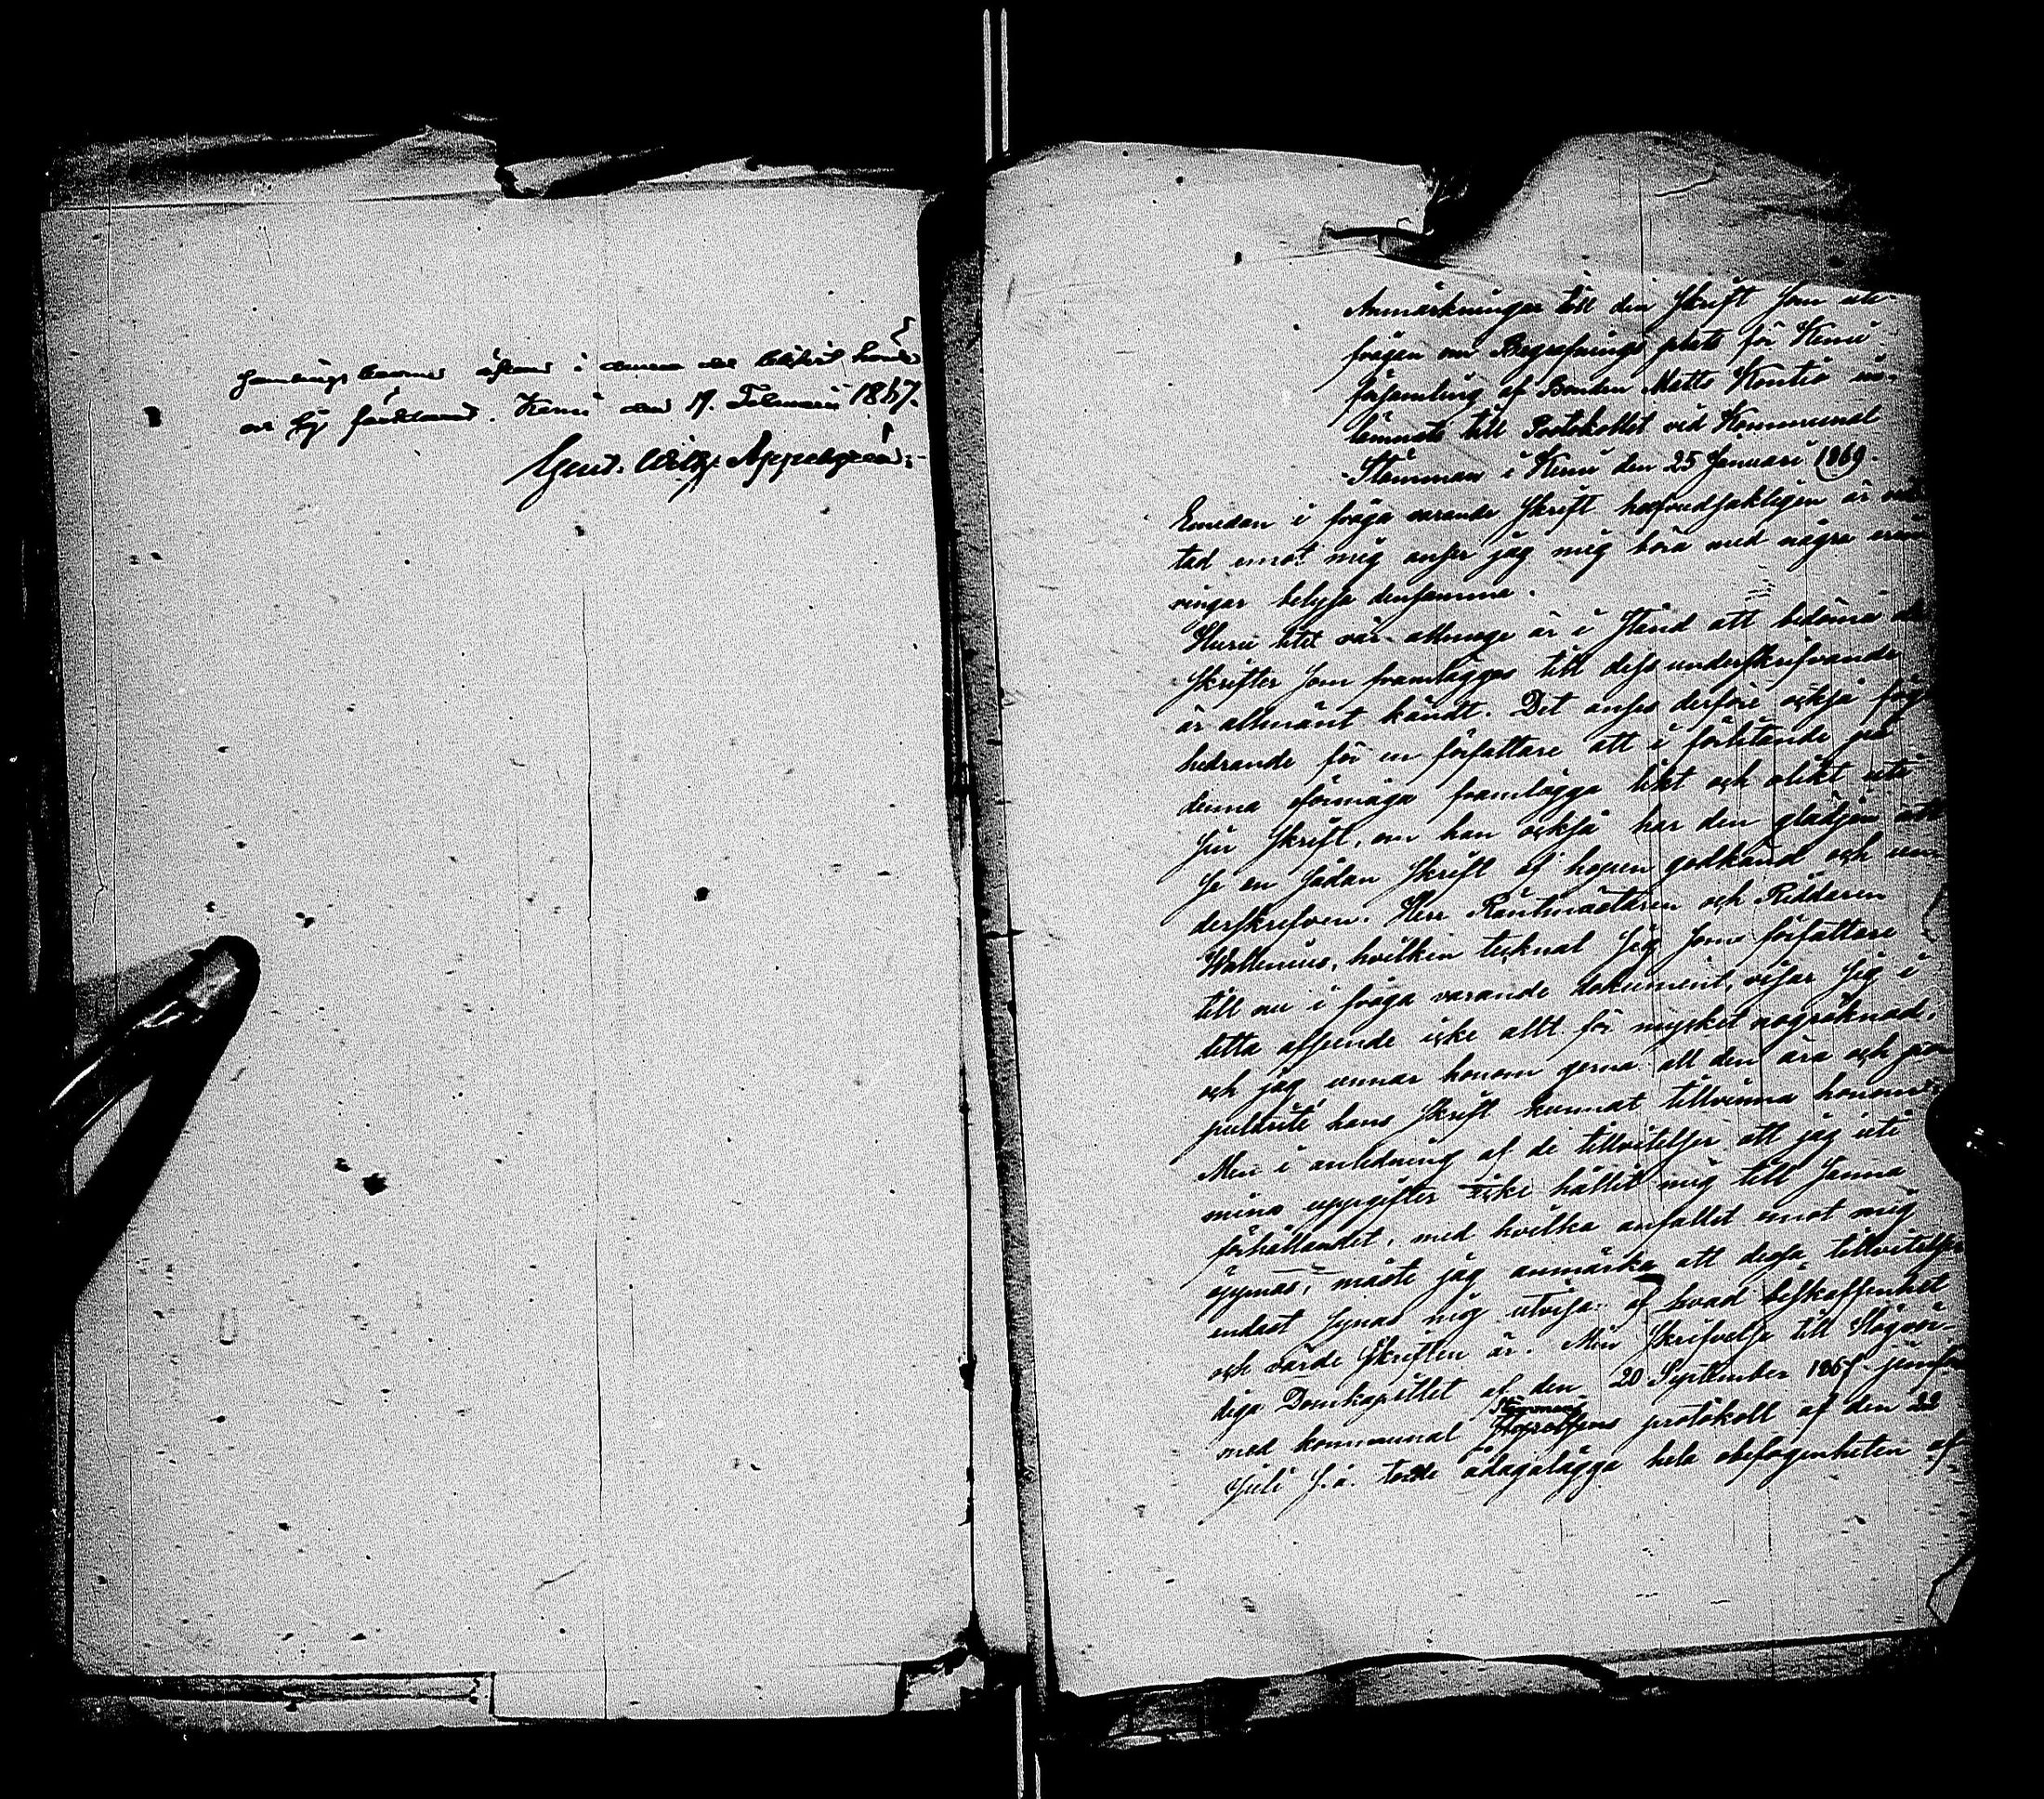 samlings barnes i denna del blifvit
ar sig förklarad. Kemi den 17. Februarii 1867.
Gust. Wilh. Appelgren
Anmärkningar till den skrift som uti
frågan om Begrafnings plats för Kemi
församling af Bonden Matts Kontio in-
lemnats till Protokollet vid Kommunal
Stämman i Kemi den 25 Januari 1869.
Emedan i fråga varande skrift hufvudsakligen är rik-
tad emot mig anser jag mig böra med några erin
ringar belysa densamma.
Huru litet vår allmoge är i stånd att bedöma de
skrifter som framlägges till dess underskrifvande
är allmänt kändt. Det anses derföre också föga
hedrande för en författare att i förlitande på
denna oförmåga framlägga likt och olikt uti
sin skrift, om han också har den glädjen att
se en sådan skrift af hopen godkänd och un-
derskrefven. Herr Räntmästaren och Riddaren
Wallenius, hvilken tecknat sig som författare
till nu i fråga varande dokument, visar sig i
detta afseende icke allt för mycket nogräknad,
och jag unnar honom gerna all den ära och po-
pularité hans skrift kunnat tillvinna honom.
Men i anledning af de tillvitelser att jag uti
mina uppgifter icke hållit mig till sanna
förhållandet, med hvilka anfallet emot mig
öppnas, måste jag anmärka att dessa tillvitelser
endast synas mig utvisa af hvad beskaffenhet
och värde skriften är. Min skrifvelse till Högvör-
diga Domkapitlet af den 20 September 1868 jemförd
med kommunal Stämmans protokoll af den 22
Juli s.å. torde ådagalägga hela obefogenheten af